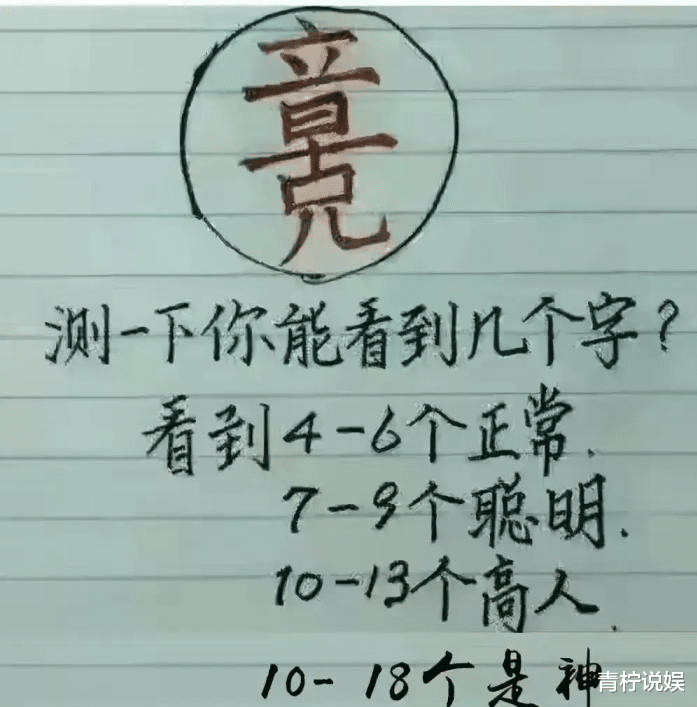 测一下你能看到几个字?
看到4-6个正常.
7-9个聪明.
10-13个高人.
10-18个是神
青柠说娱